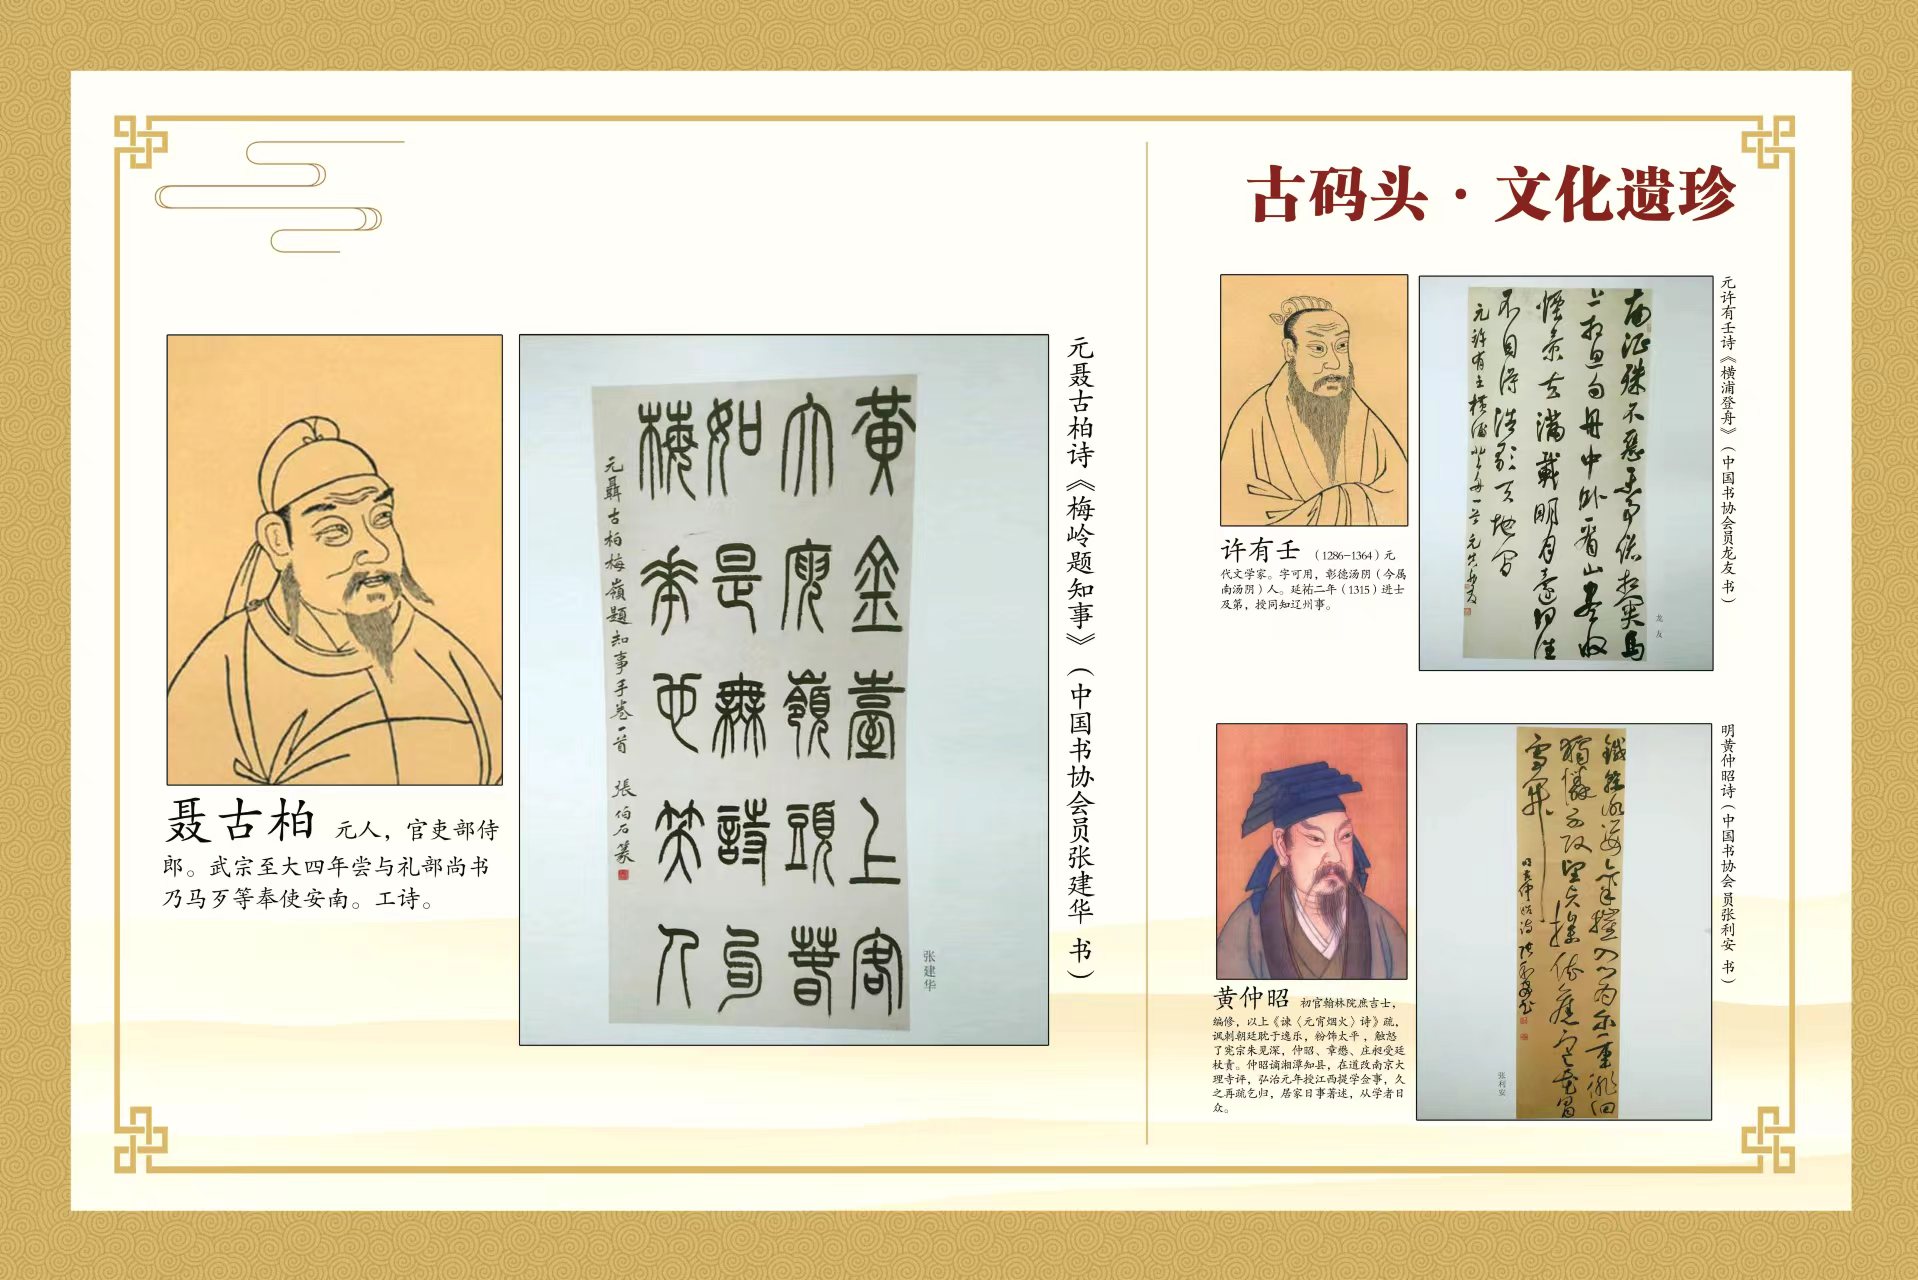 古码头·文化遗珍
聂古柏 元人，官吏部侍
郎。武宗至大四年尝与礼部尚书
乃马歹等奉使安南。工诗。
黃金臺上客
大庾嶺頭春
如是無詩句
梅華也笑人
元聶古柏梅嶺題知事手卷一首 張伯石篆
张建华
元聂古柏诗《梅岭题知事》（中国书协会员张建华 书）
许有壬 （1286-1364）元
代文学家。字可用，彰德汤阴（今属
南汤阴）人。延祐二年（1315）进士
及第，授同知辽州事。
南征殊不恶
舟中卧看山
景去满載明月
不自得浩歌天地間
元許有壬橫浦登舟一首
龙友
元许有壬诗《横浦登舟》（中国书协会员龙友 书）
黄仲昭 初官翰林院庶吉士，
编修，以上《谏〈元宵烟火〉诗》疏，
讽刺朝廷耽于逸乐，粉饰太平，触怒
了宪宗朱见深，仲昭、章懋、庄昶受廷
杖责。仲昭谪湘潭知县，在道改南京大
理寺评，弘治元年授江西提学佥事，久
之再疏乞归，居家日事著述，从学者日
众。
张利安
明黄仲昭诗（中国书协会员张利安 书）